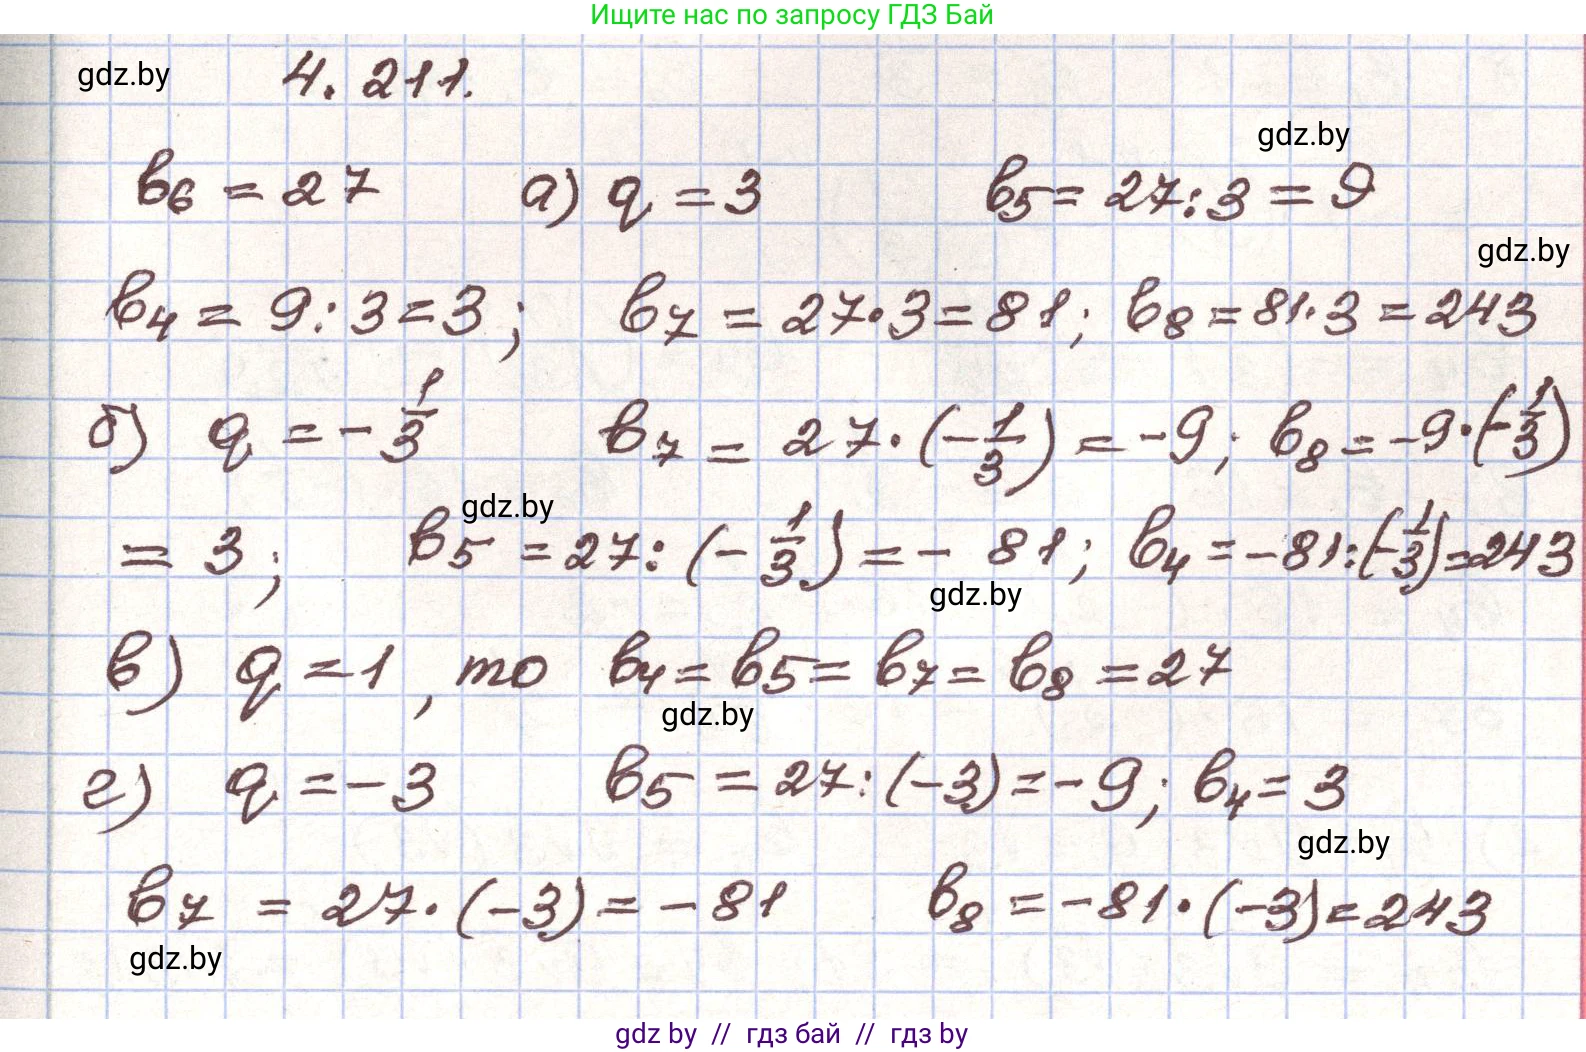 Ищите нас по запросу ГДЗ Бай
gdz.by 4.211.
gdz.by
b₆ = 27 а) q = 3 b₅ = 27:3 = 9
gdz.by
b₄ = 9:3=3; b₇ = 27·3=81; b₈=81·3=243
б) q = -1/3 b₇ = 27·(-1/3) = -9; b₈ = -9·(-1/3)
gdz.by
= 3; b₅ = 27:(-1/3) = - 81; b₄ = -81:(-1/3)=243
gdz.by
в) q = 1, то b₄ = b₅ = b₇ = b₈ = 27
gdz.by
г) q = -3 b₅ = 27:(-3) = -9; b₄ = 3
gdz.by
b₇ = 27·(-3) = -81 b₈ = -81·(-3)=243
gdz.by
gdz by // гдз бай // гдз by